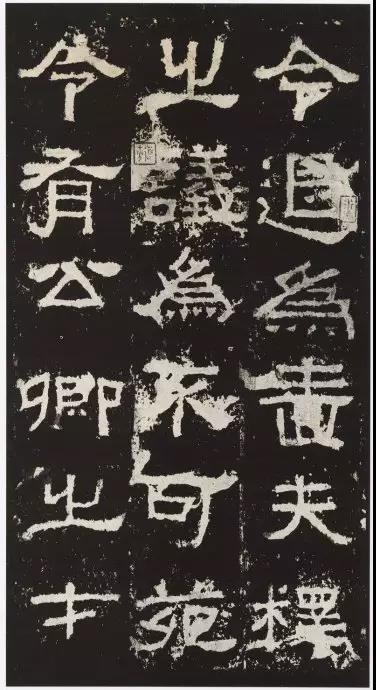 令退為嗇夫釋
之議為不可苑
令有公卿之才